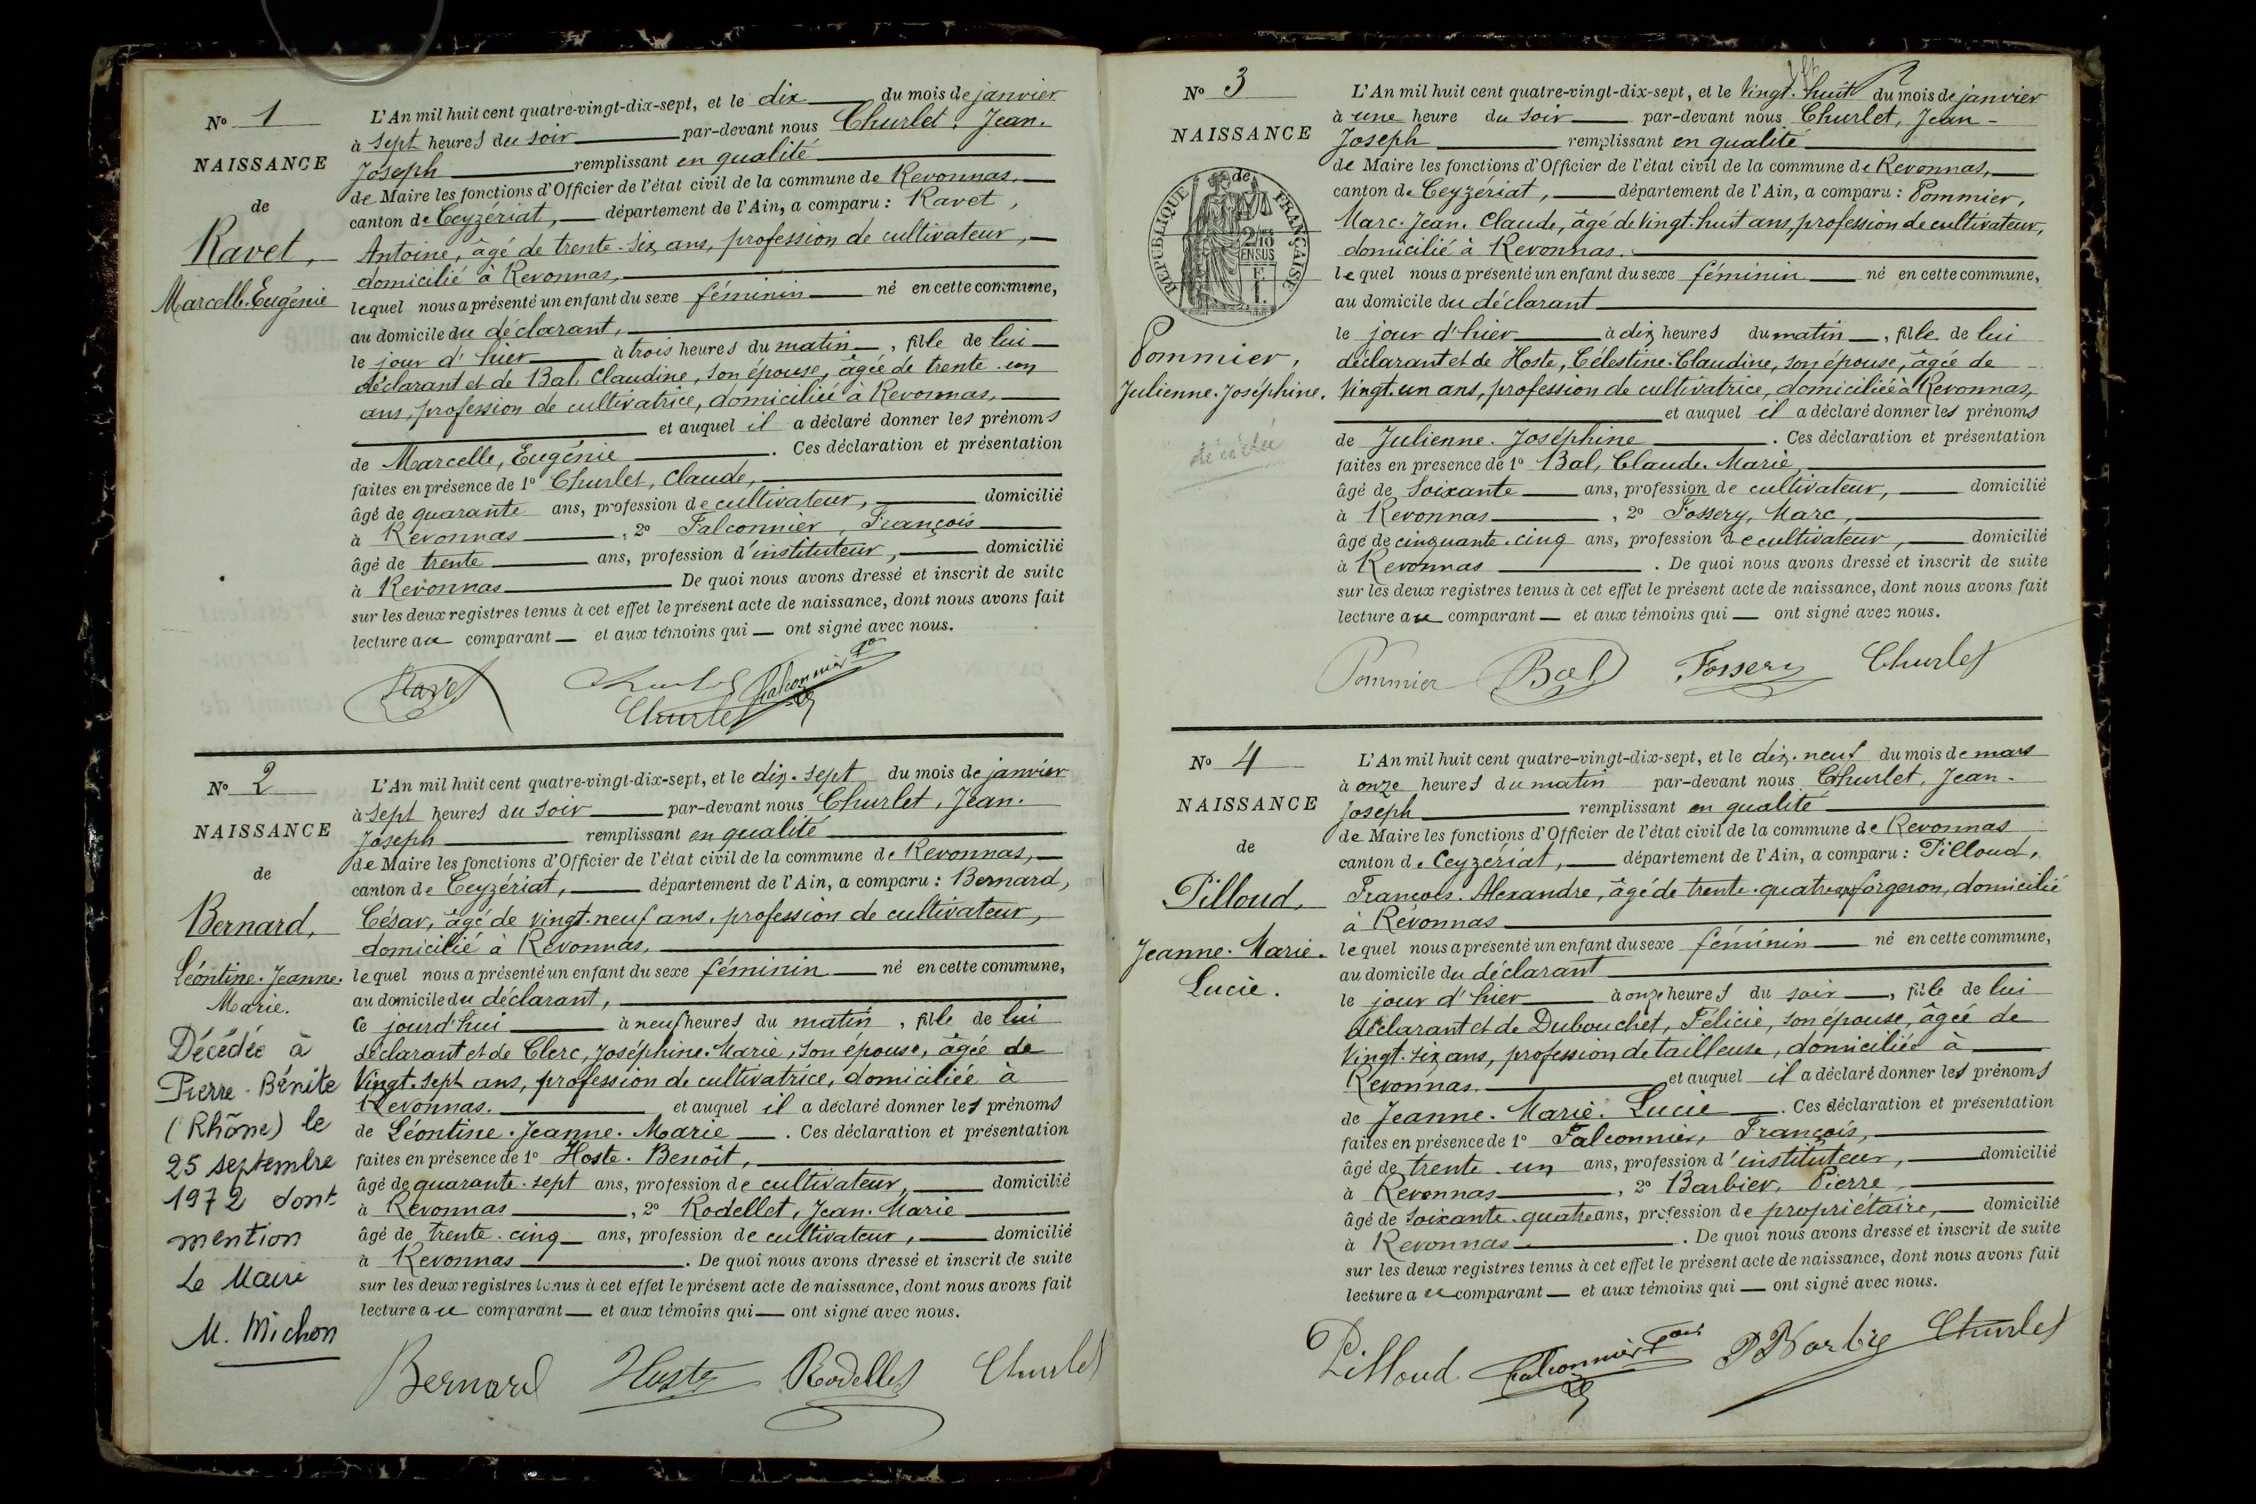 N° 1
NAISSANCE
de
Ravet,
Marcelle. Eugénie
L'An mil huit cent quatre-vingt-dix-sept, et le dix du mois de janvier
à sept heures du soir par-devant nous Churlet, Jean.
Joseph remplissant en qualité
de Maire les fonctions d'Officier de l'état civil de la commune de Revonnas,
canton de Ceyzériat, département de l'Ain, a comparu : Ravet,
Antoine, âgé de trente-six ans, profession de cultivateur,
domicilié à Revonnas,
lequel nous a présenté un enfant du sexe féminin né en cette commune,
au domicile du déclarant,
le jour d'hier à trois heures du matin, fille de lui
déclarant et de Bal, Claudine, son épouse, âgée de trente-un
ans, profession de cultivatrice, domiciliée à Revonnas,
et auquel il a déclaré donner les prénoms
de Marcelle, Eugénie. Ces déclaration et présentation
faites en présence de 1° Churlet, Claude,
âgé de quarante ans, profession de cultivateur, domicilié
à Revonnas, 2° Falconnier, François
âgé de trente ans, profession d'instituteur, domicilié
à Revonnas De quoi nous avons dressé et inscrit de suite
sur les deux registres tenus à cet effet le présent acte de naissance, dont nous avons fait
lecture au comparant et aux témoins qui ont signé avec nous.
Ravet Churlet Falconnier Fois
Churlet
N° 2
NAISSANCE
de
Bernard,
Léontine. Jeanne.
Marie.
Décédée à
Pierre-Bénite
(Rhône) le
25 septembre
1972 dont
mention
Le Maire
M. Michon
L'An mil huit cent quatre-vingt-dix-sept, et le dix-sept du mois de janvier
à sept heures du soir par-devant nous Churlet, Jean.
Joseph remplissant en qualité
de Maire les fonctions d'Officier de l'état civil de la commune de Revonnas,
canton de Ceyzériat, département de l'Ain, a comparu : Bernard,
César, âgé de vingt-neuf ans, profession de cultivateur,
domicilié à Revonnas,
lequel nous a présenté un enfant du sexe féminin né en cette commune,
au domicile du déclarant,
ce jourd'hui à neuf heures du matin, fille de lui
déclarant et de Clerc, Joséphine. Marie, son épouse, âgée de
vingt-sept ans, profession de cultivatrice, domiciliée à
Revonnas. et auquel il a déclaré donner les prénoms
de Léontine. Jeanne. Marie. Ces déclaration et présentation
faites en présence de 1° Hoste. Benoît,
âgé de quarante-sept ans, profession de cultivateur, domicilié
à Revonnas, 2° Rodellet, Jean. Marie
âgé de trente-cinq ans, profession de cultivateur, domicilié
à Revonnas. De quoi nous avons dressé et inscrit de suite
sur les deux registres tenus à cet effet le présent acte de naissance, dont nous avons fait
lecture au comparant et aux témoins qui ont signé avec nous.
Bernard Hoste Rodellet Churlet
N° 3
NAISSANCE
de
RÉPUBLIQUE FRANÇAISE
2/10 EN SUS
Pommier,
Julienne. Joséphine.
décédée
L'An mil huit cent quatre-vingt-dix-sept, et le vingt-huit du mois de janvier
à une heure du soir par-devant nous Churlet, Jean-
Joseph remplissant en qualité
de Maire les fonctions d'Officier de l'état civil de la commune de Revonnas,
canton de Ceyzériat, département de l'Ain, a comparu : Pommier,
Marc. Jean. Claude, âgé de vingt-huit ans, profession de cultivateur,
domicilié à Revonnas.
lequel nous a présenté un enfant du sexe féminin né en cette commune,
au domicile du déclarant
le jour d'hier à dix heures du matin, fille de lui
déclarant et de Hoste, Célestine. Claudine, son épouse, âgée de
vingt-un ans, profession de cultivatrice, domiciliée à Revonnas,
et auquel il a déclaré donner les prénoms
de Julienne. Joséphine. Ces déclaration et présentation
faites en présence de 1° Bal, Claude. Marie,
âgé de soixante ans, profession de cultivateur, domicilié
à Revonnas, 2° Fossery, Marc,
âgé de cinquante-cinq ans, profession de cultivateur, domicilié
à Revonnas. De quoi nous avons dressé et inscrit de suite
sur les deux registres tenus à cet effet le présent acte de naissance, dont nous avons fait
lecture au comparant et aux témoins qui ont signé avec nous.
Pommier Bal Fossery Churlet
N° 4
NAISSANCE
de
Pilloud,
Jeanne. Marie.
Lucie.
L'An mil huit cent quatre-vingt-dix-sept, et le dix-neuf du mois de mars
à onze heures du matin par-devant nous Churlet, Jean-
Joseph remplissant en qualité
de Maire les fonctions d'Officier de l'état civil de la commune de Revonnas
canton de Ceyzériat, département de l'Ain, a comparu : Pilloud,
François. Alexandre, âgé de trente-quatre ans, forgeron, domicilié
à Revonnas
lequel nous a présenté un enfant du sexe féminin né en cette commune,
au domicile du déclarant
le jour d'hier à onze heures du soir, fille de lui
déclarant et de Dubouchet, Félicie, son épouse, âgée de
vingt-six ans, profession de tailleuse, domiciliée à
Revonnas. et auquel il a déclaré donner les prénoms
de Jeanne. Marie. Lucie. Ces déclaration et présentation
faites en présence de 1° Falconnier, François,
âgé de trente-un ans, profession d'instituteur, domicilié
à Revonnas, 2° Barbier, Pierre,
âgé de soixante-quatre ans, profession de propriétaire, domicilié
à Revonnas. De quoi nous avons dressé et inscrit de suite
sur les deux registres tenus à cet effet le présent acte de naissance, dont nous avons fait
lecture au comparant et aux témoins qui ont signé avec nous.
Pilloud Falconnier Fois P Barbie Churlet